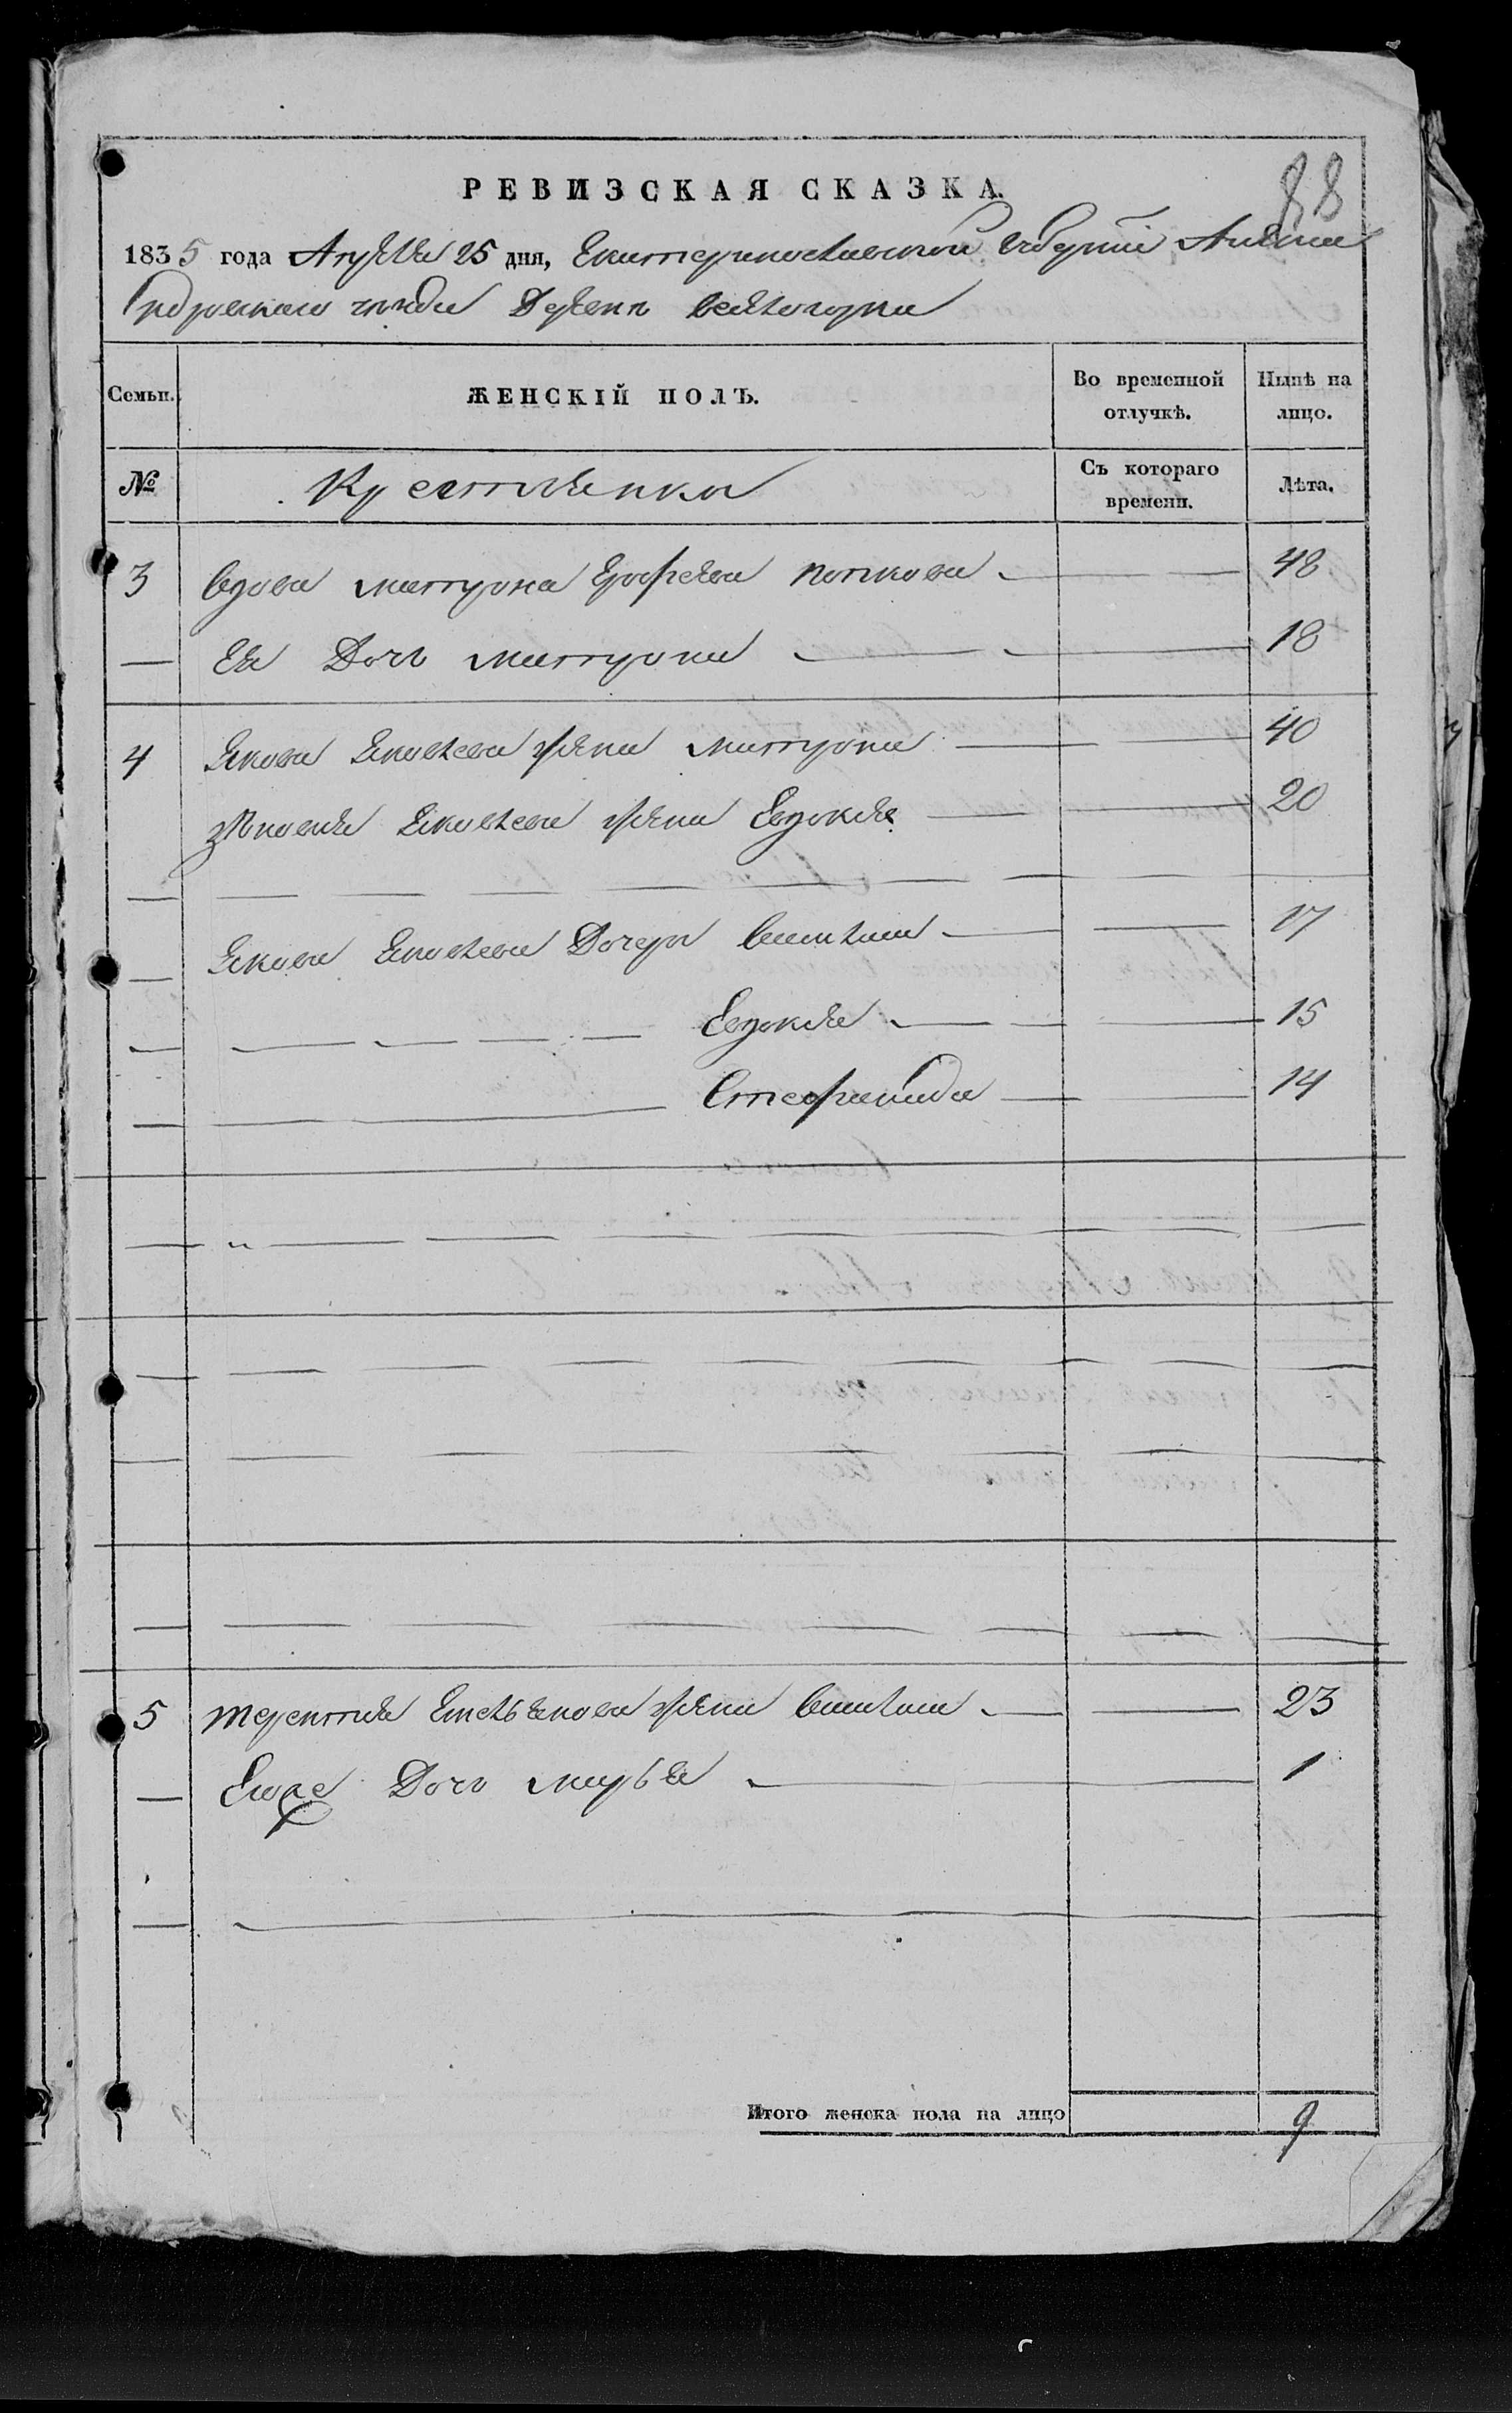 88
РЕВИЗСКАЯ СКАЗКА.
1835 года Апреля 25 дня, Екатеринославской Губернии Алекса
ндровскаго уезда Деревни
Семьи. ЖЕНСКІЙ ПОЛЪ. Во временной отлучкѣ. Нынѣ на лицо.
№ Крестьянки Съ котораго времени. Лѣта.
3 вдова матрона Ерофеева попкова 48
Ея Дочь матрона 18
4 Якова Яковлева жена матрона 40
зѣновия Яковлева жена Евдокия 20
Якова Яковлева Дочери 17
Евдокия 15
Стефанида 14
5 терентия Емельянова жена 23
Ево Дочь марья 1
Итого женска пола на лицо 9